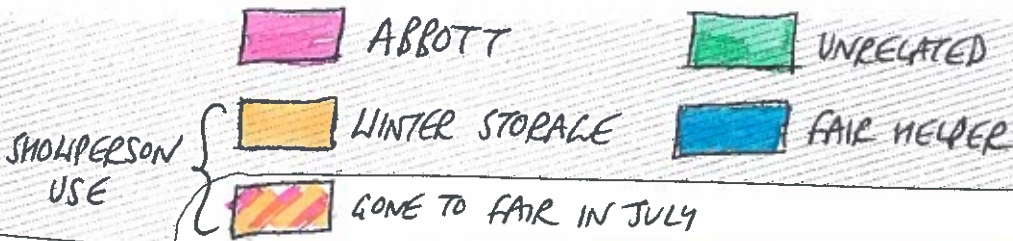 ABBOTT
UNRELATED
SHOWPERSON
USE
WINTER STORAGE
FAIR HELPER
GONE TO FAIR IN JULY